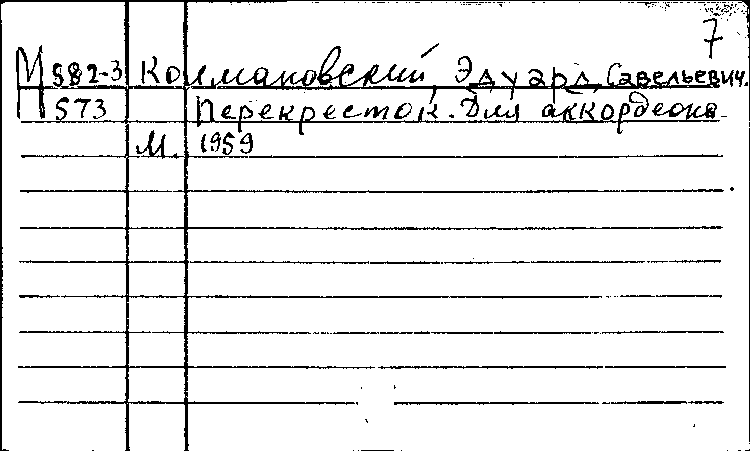 7
М 582-3 Колмановский, Эдуард Савельевич.
573 Перекресток. Для аккордеона.
М. 1959